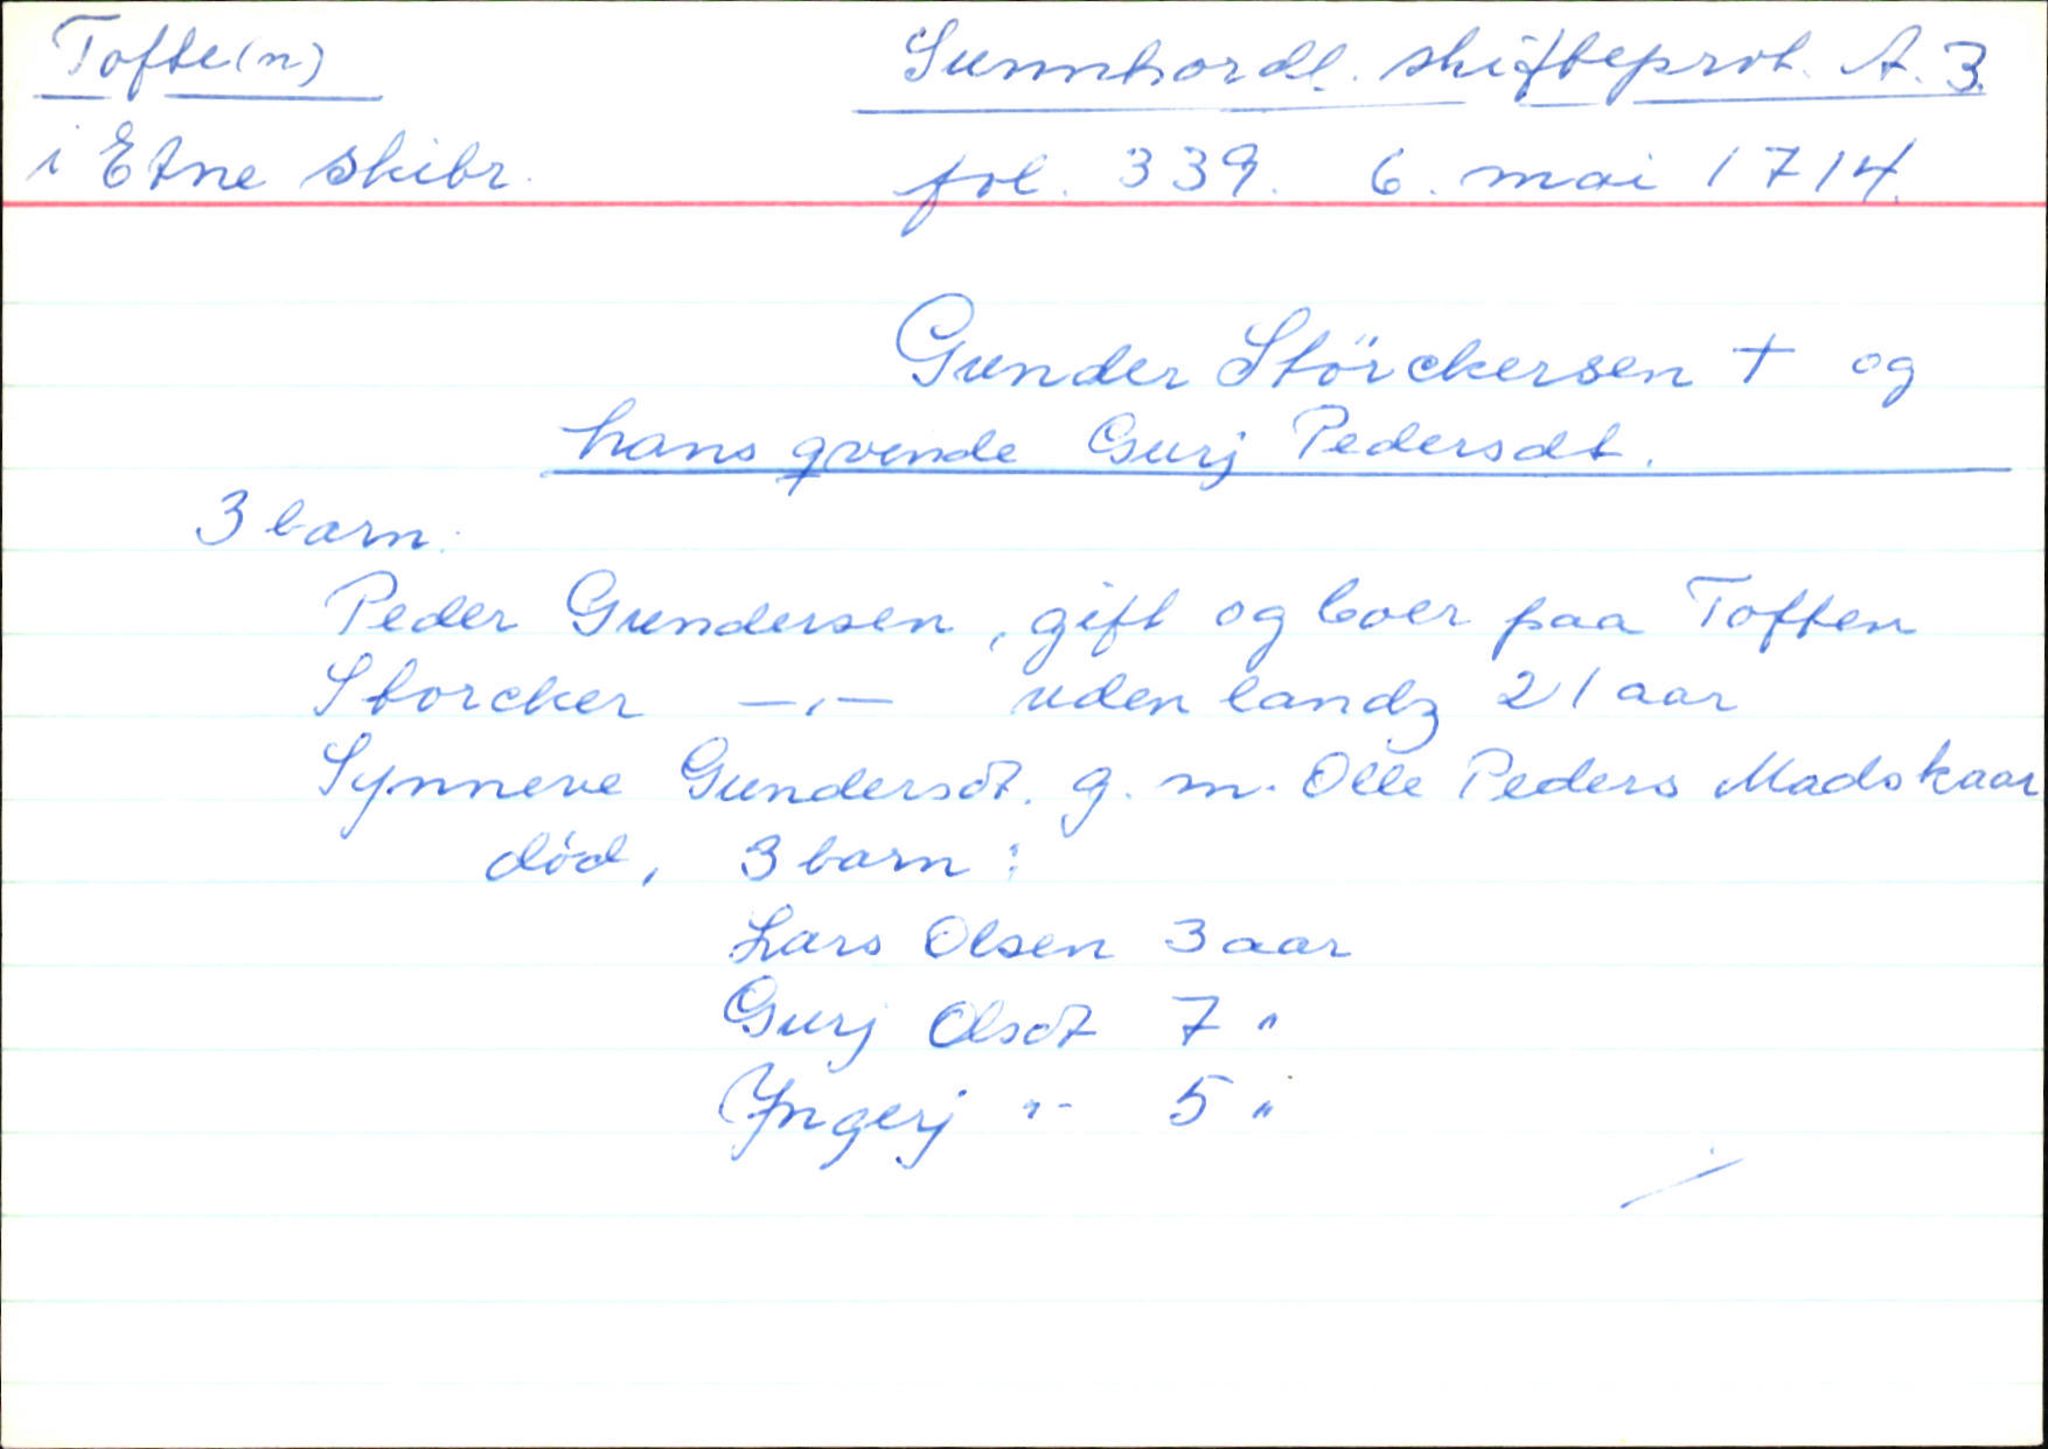 Tofte(n)
Sunnhordl. skifteprot. A. 3.
i Etne skibr.
fol. 339. 6. mai 1714.
Gunder Störckersen + og
hans qvende Gurj Pedersdt.
3 barn:
Peder Gundersen, gift og boer paa Toften
Storcker —,— uden landz 21 aar
Synneve Gundersdt. g. m. Olle Peders Madskaar
död, 3 barn:
Lars Olsen 3 aar
Gurj Olsdt 7 "
Yngerj "- 5 "